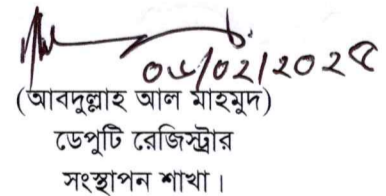 ০৬/০২/২০২৫
(আবদুল্লাহ আল মাহমুদ)
ডেপুটি রেজিস্ট্রার
সংস্থাপন শাখা।